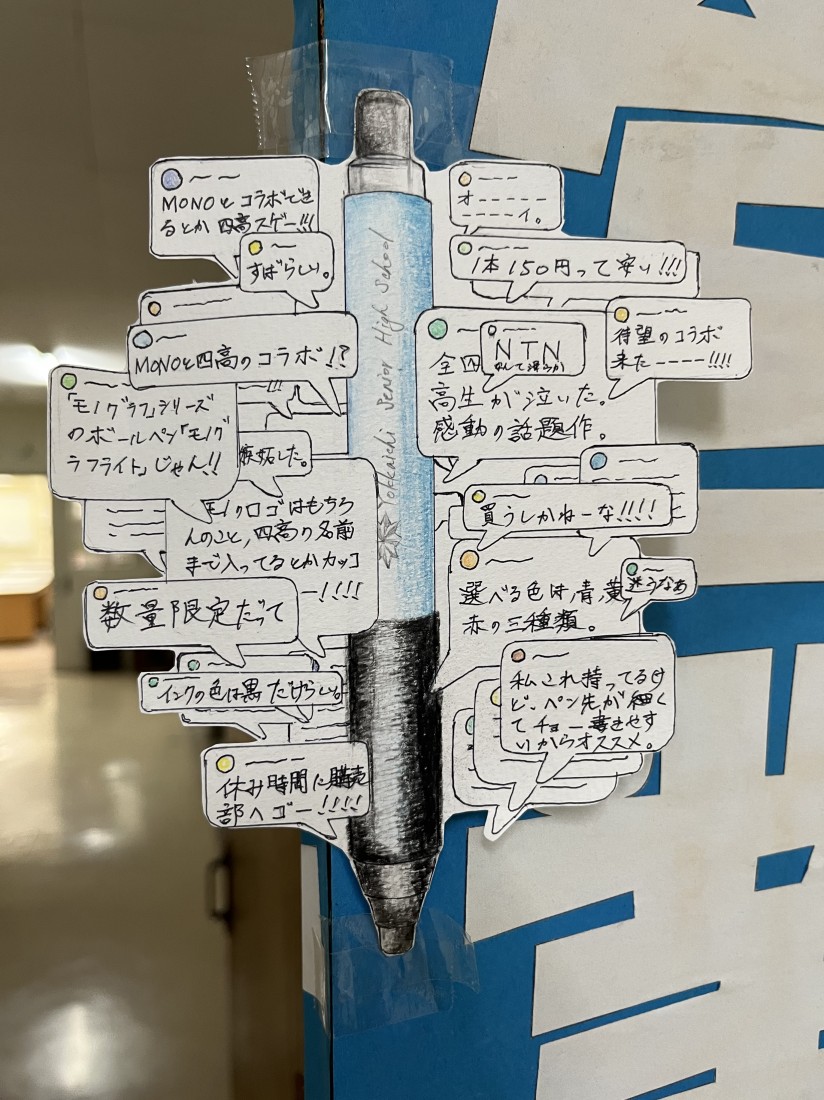 MONOとコラボでき
るとか四高スゲー!!!
すばらしい。
MONOと四高のコラボ!?
「モノグラフ」シリーズ
のボールペン「モノグ
ラフライト」じゃん!!
!!!
嫉妬した。
モノクロゴはもちろ
んのこと、四高の名前
まで入ってるとかカッコ
ー!!!!
数量限定だって
インクの色は黒だけらしいよ
休み時間に購売
部へゴー!!!!
Yokkaichi Senior High School
オ-----
-----イ。
1本150円って安い!!!
待望のコラボ
来たーーーー!!!!
全四
高生が泣いた。
感動の話題作。
NTN
買うしかねーな!!!!
選べる色は、青、黄、
赤の三種類。
迷うなあ
私これ持ってるけ
ど、ペン先が細く
てチョー書きやす
いからオススメ。